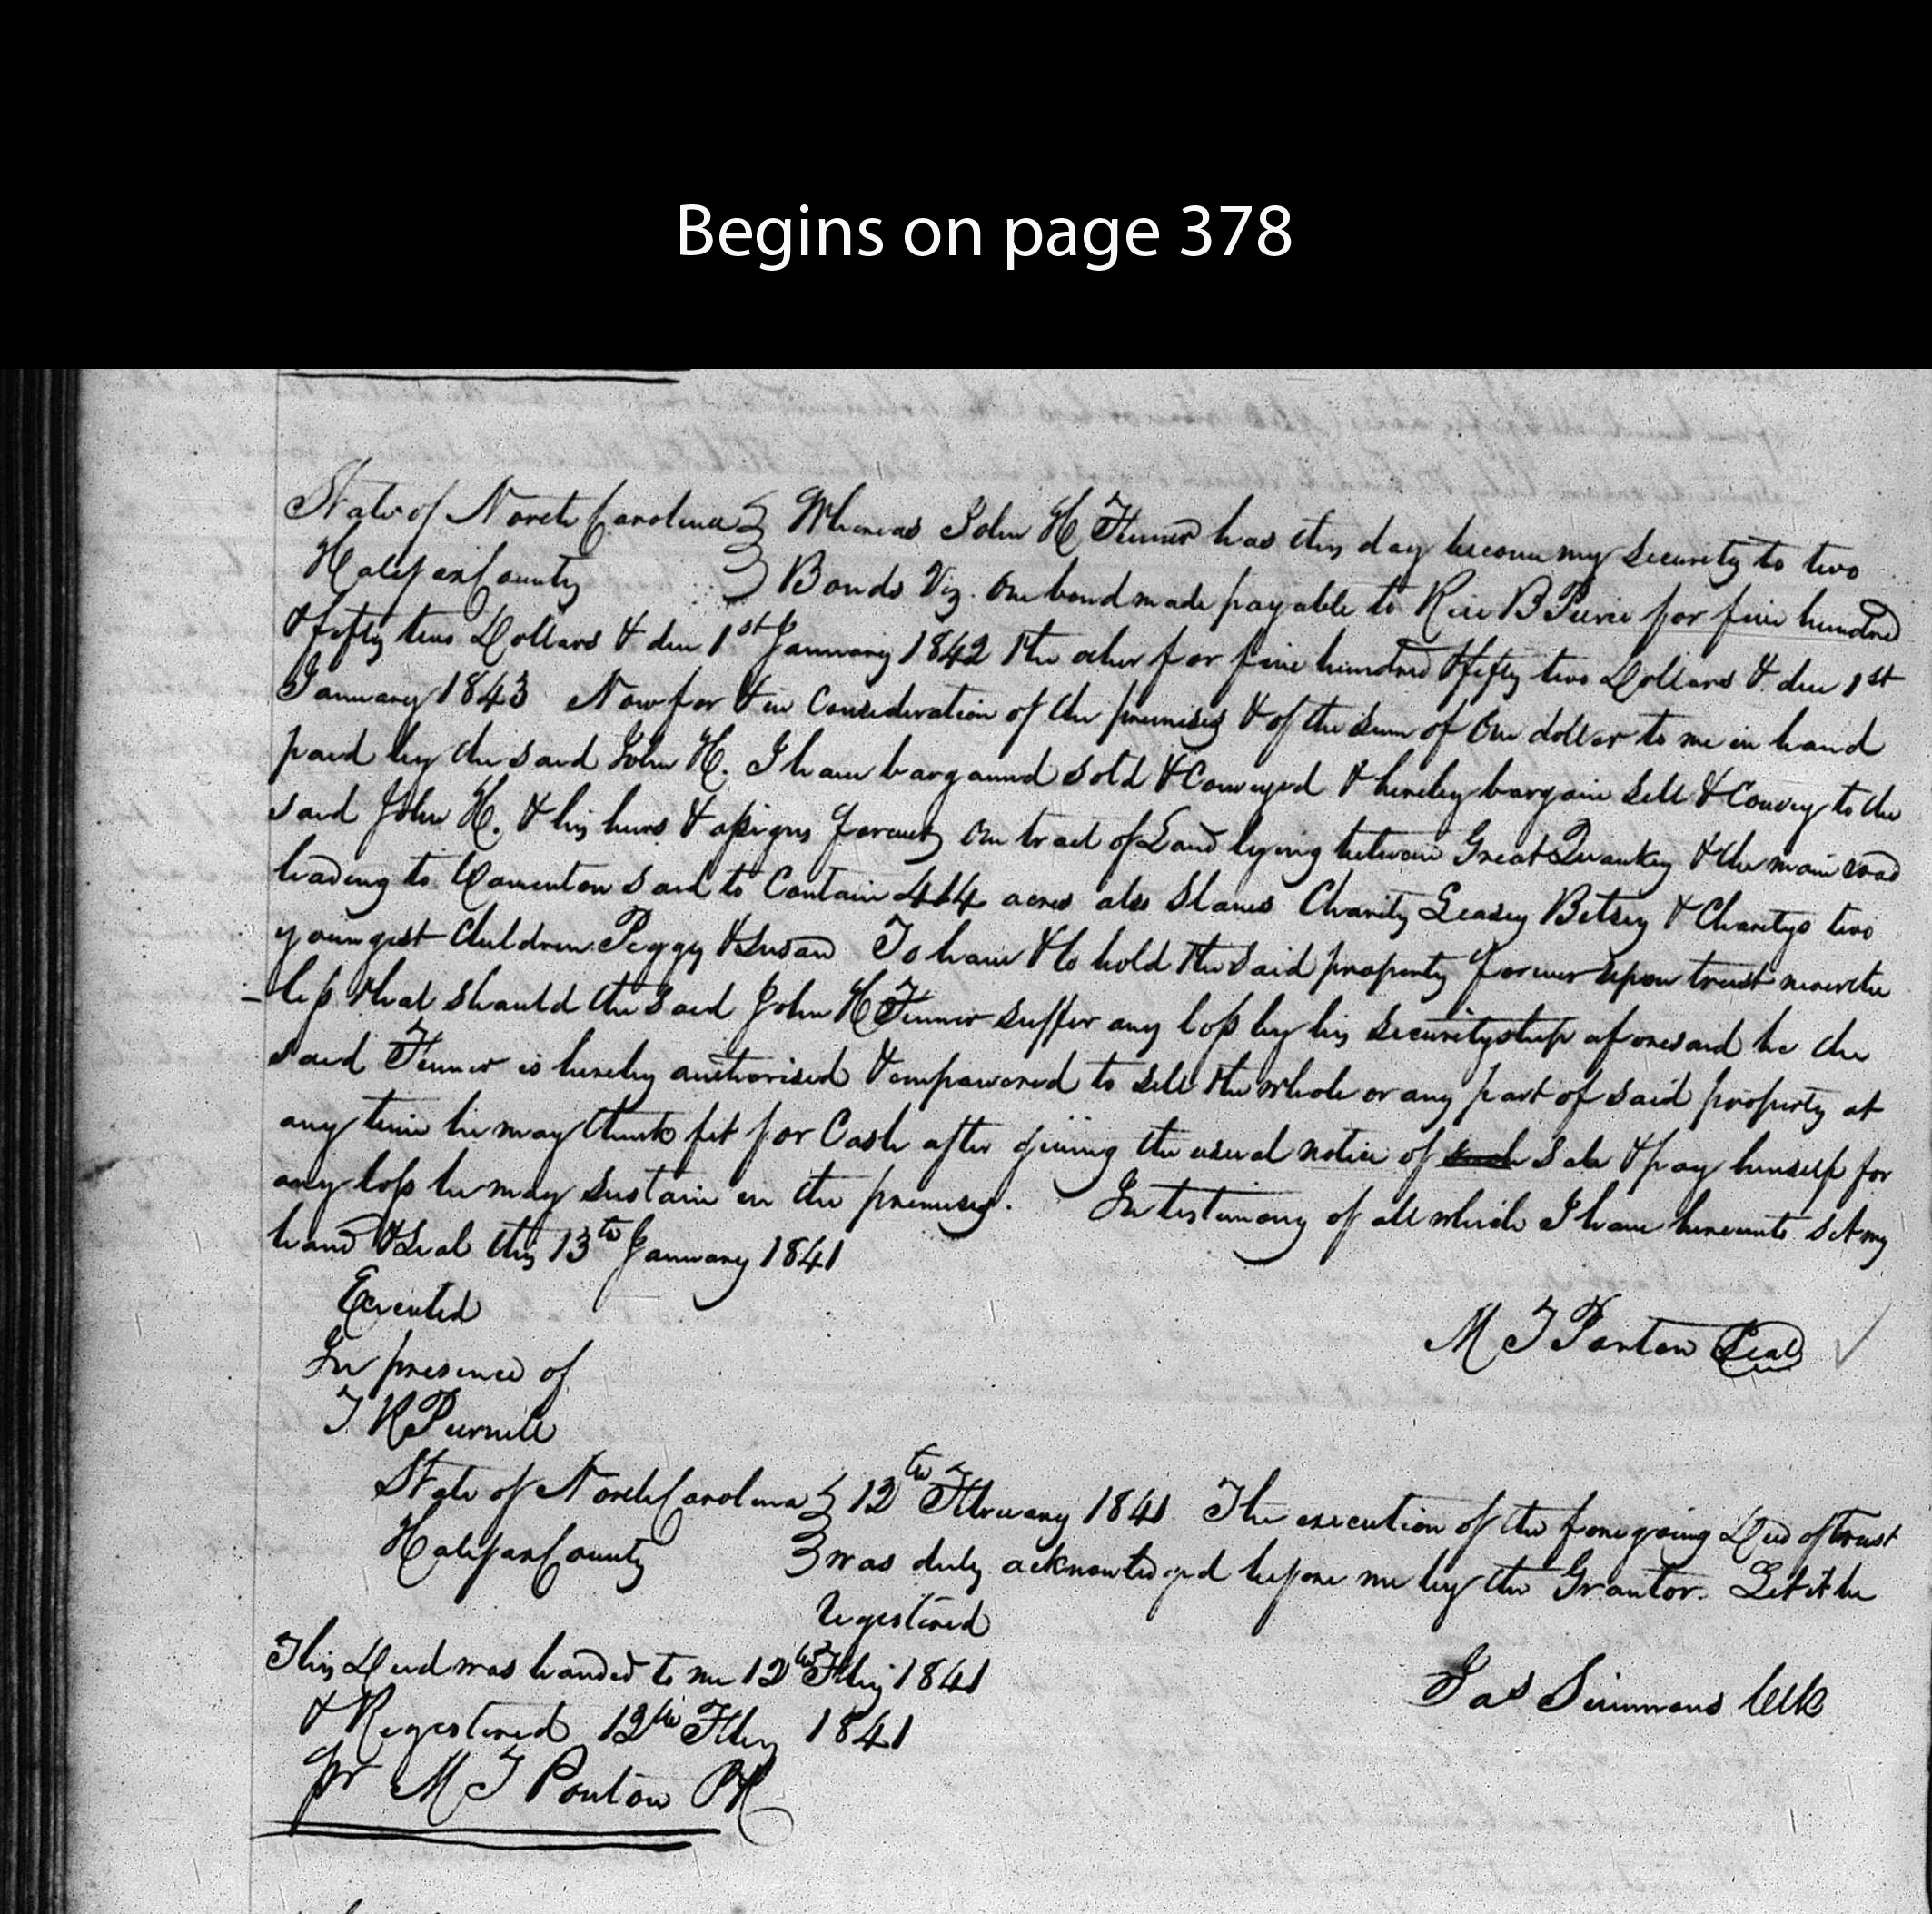 Begins on page 378
State of North Carolina } Whereas John H Fenner has this day become my Security to two
Halifax County } Bonds Viz. One bond made payable to Rice B Pierce for five hundred
& fifty two Dollars & due 1st January 1842 The other for five hundred & fifty two Dollars & due 1st
January 1843 Now for & in Consideration of the premises & of the Sum of One dollar to me in hand
paid by the said John H. I have bargained sold & Conveyed & hereby bargain Sell & Convey to the
said John H. & his heirs & assigns forever One tract of Land lying between Great Quankey & the main road
leading to Warrenton Said to Contain 414 acres also Slaves Charity Leasey Betsey & Charitys two
youngest Children Peggy & Susan To have & to hold the Said property forever Upon trust neverthe
-less that should the Said John H Fenner suffer any loss by his Securityship aforesaid he the
said Fenner is hereby authorised & empowered to sell the whole or any part of said property at
any time he may think fit for Cash after giving the usual notice of such Sale & pay himself for
any loss he may Sustain in the premises. In testimony of all which I have hereunto Set my
hand & Seal this 13th January 1841
Executed
In presence of
M T Ponton Seal
T R Purnell
State of North Carolina } 12th February 1841 The execution of the foregoing Deed of trust
Halifax County } was duly acknowledged before me by the Grantor. Let it be
Registered
This Deed was handed to me 12th Feby 1841
Jas Simmons Clk
& Registered 12th Feby 1841
pr M T Ponton PR